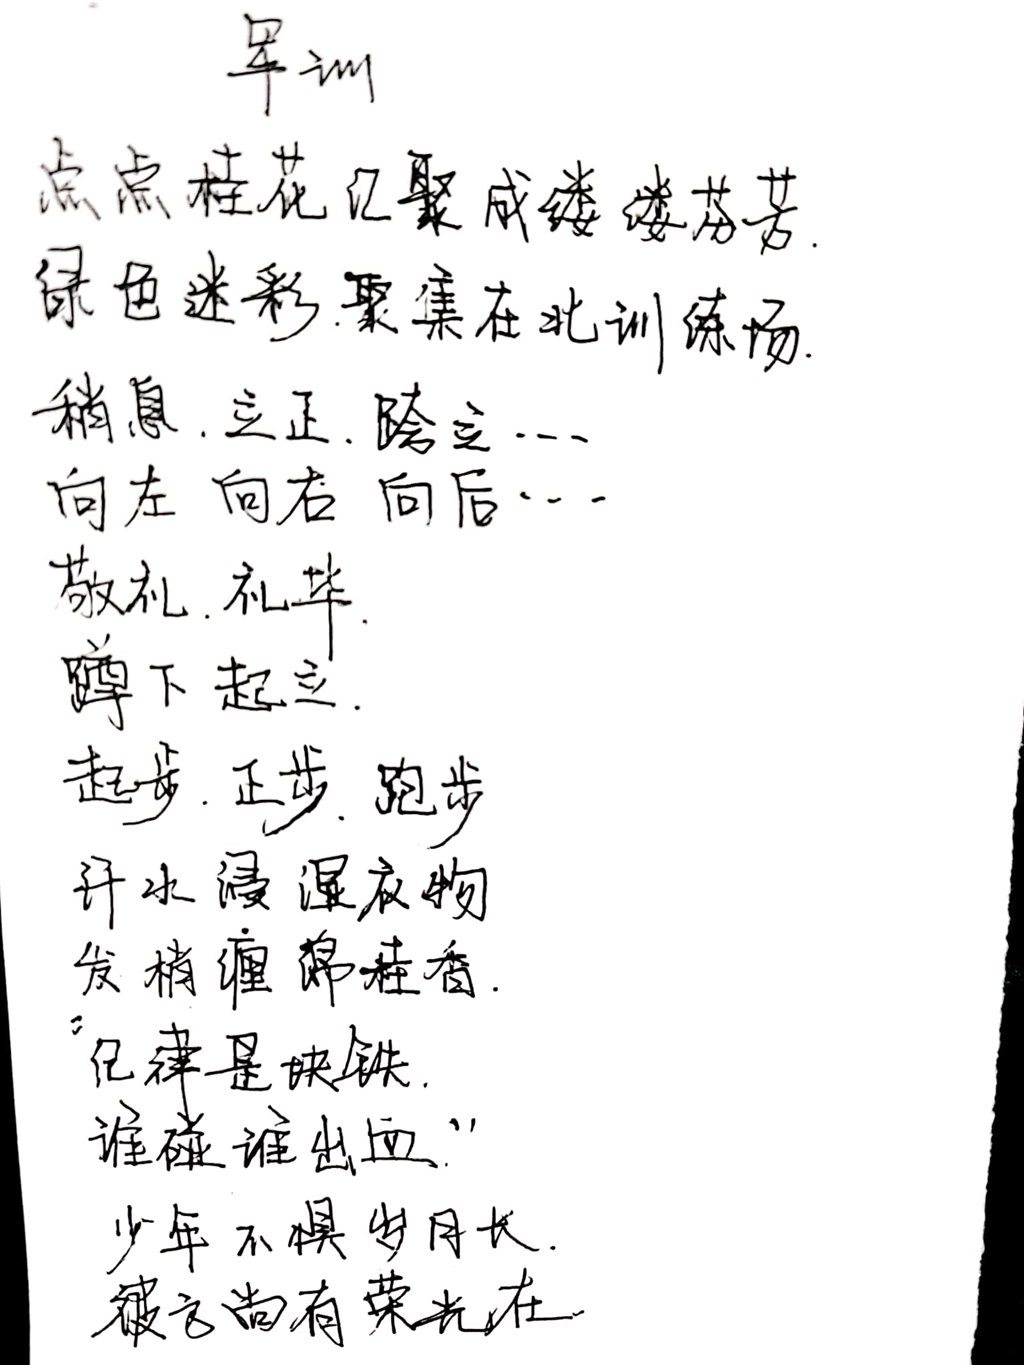 军训
点点桂花汇聚成缕缕芬芳.
绿色迷彩.聚集在北训练场.
稍息.立正.跨立···
向左 向右 向后···
敬礼.礼毕.
蹲下起立.
起步.正步.跑步
汗水浸湿衣物
发梢缠绵桂香.
"纪律是块铁.
谁碰谁出血."
少年不惧岁月长.
彼方尚有荣光在.